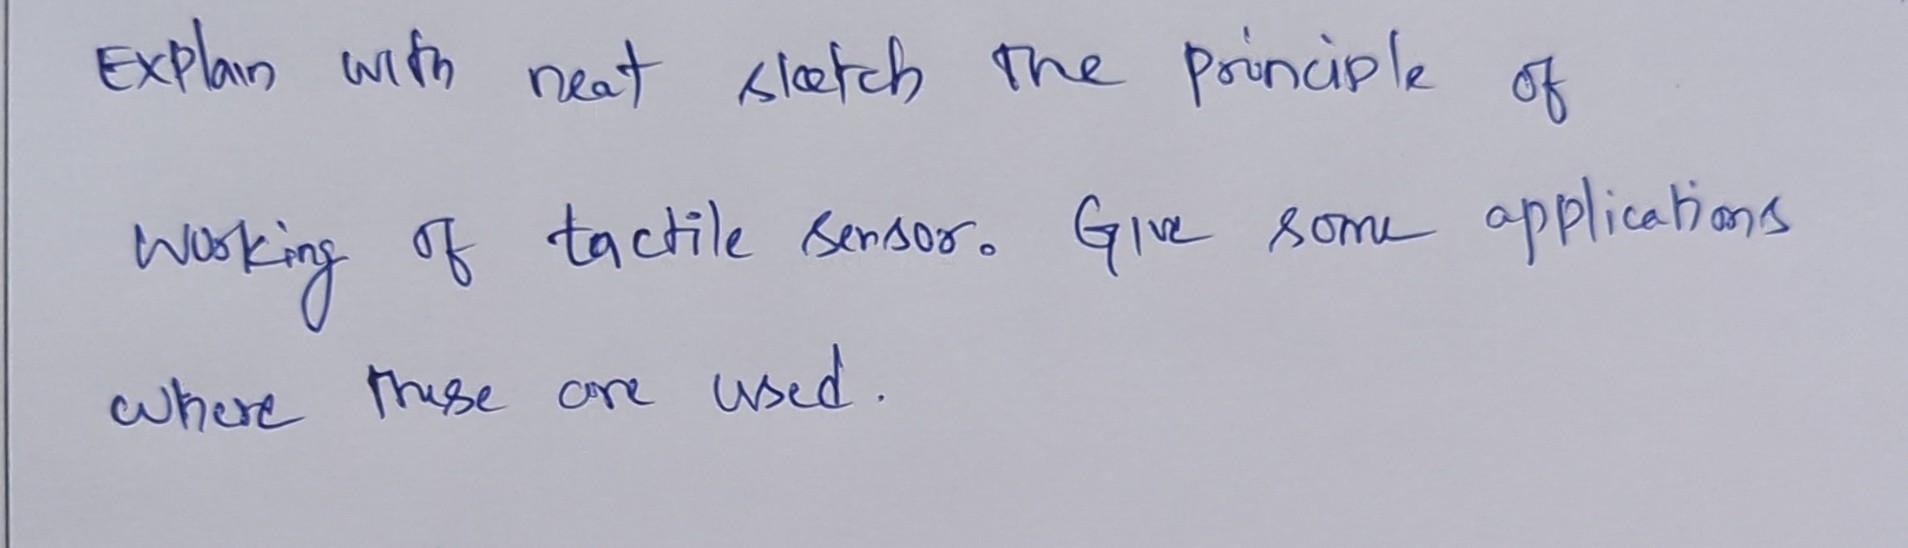 Explain with neat sketch the principle of
working of tactile sensor. Give some applications
where these are used.